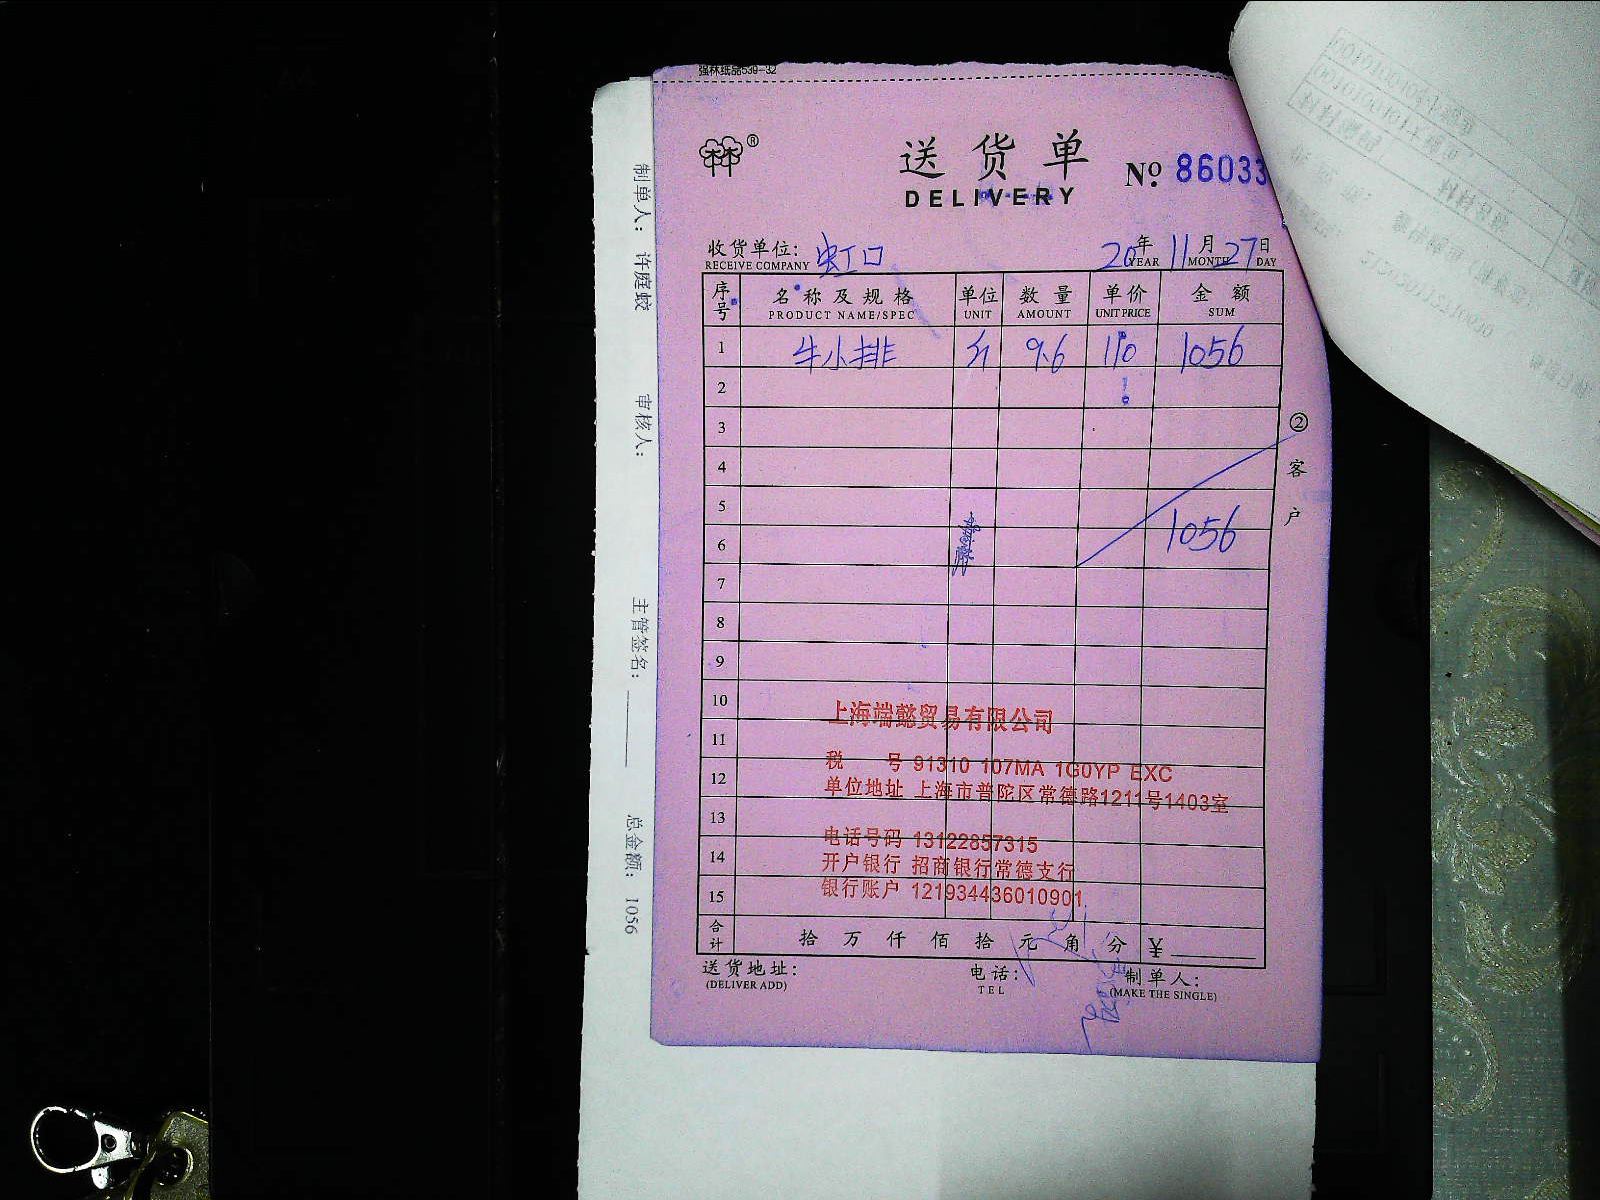 强林纸品539-32
送货单
DELIVERY
Nº 86033
收货单位: 虹口
RECEIVE COMPANY
20年 11月 27日
YEAR MONTH DAY
序号 名称及规格 单位 数量 单价 金额
PRODUCT NAME/SPEC UNIT AMOUNT UNIT PRICE SUM
1 牛小排 斤 9.6 110 1056
2
3
4
5
6 1056
7
8
9
10
11
12
13
14
15
②客户
上海端懿贸易有限公司
税 号 91310 107MA 1G0YP EXC
单位地址 上海市普陀区常德路1211号1403室
电话号码 13122857315
开户银行 招商银行常德支行
银行账户 121934436010901
合计 拾 万 仟 佰 拾 元 角 分 ¥
送货地址: 电话: 制单人:
(DELIVER ADD) TEL (MAKE THE SINGLE)
制单人: 许庭蛟 审核人: 主管签名: 总金额: 1056